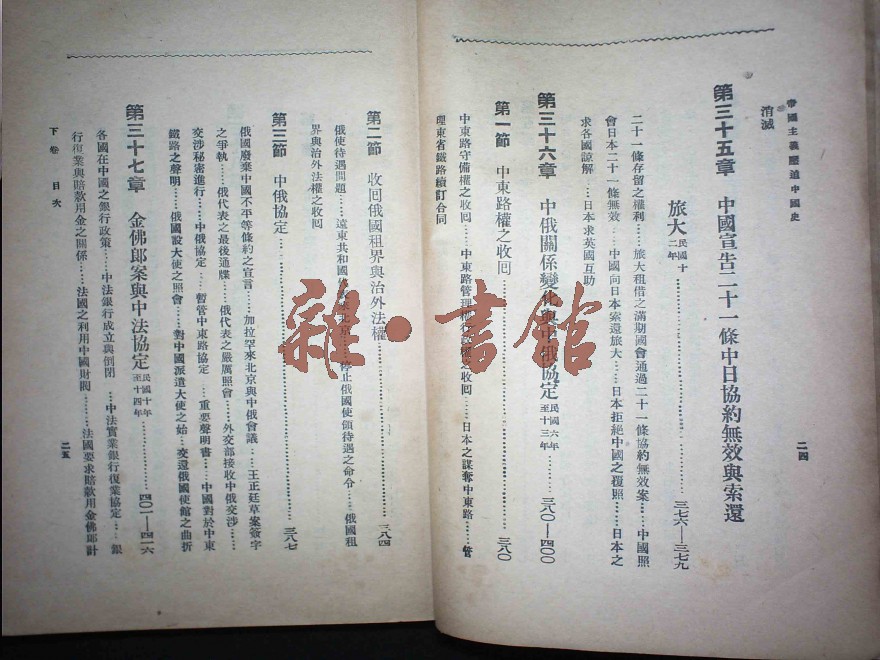 帝國主義壓迫中國史
二四
消滅
第三十五章 中國宣告二十一條中日協約無效與索還
旅大民國十二年……三七六—三七九
二十一條存留之權利……旅大租借之滿期國會通過二十一條協約無效案……中國照
會日本二十一條無效……中國向日本索還旅大……日本拒絕中國之覆照……日本之
求各國諒解……日本求英國互助
第三十六章 中俄關係變化與中俄協定民國六年至十三年……三八〇—四〇〇
第一節 中東路權之收囘……三八〇
中東路守備權之收囘……中東路管理權之收囘……日本之謀奪中東路……管
理東省鐵路續訂合同
第二節 收囘俄國租界與治外法權……三八四
俄使待遇問題……遠東共和國……北京……停止俄國使領待遇之命令……俄國租
界與治外法權之收囘
第三節 中俄協定……三八七
俄國廢棄中國不平等條約之宣言……加拉罕來北京與中俄會議……王正廷草案簽字
之爭執……俄代表之最後通牒……俄代表之嚴厲照會……外交部接收中俄交涉……
交涉秘密進行……中俄協定……暫管中東路協定……重要聲明書……中國對於中東
鐵路之聲明……俄國設大使之照會……對中國派遣大使之始……交還俄國使館之曲折
第三十七章 金佛郎案與中法協定民國十年至十四年……四〇一—四一六
各國在中國之銀行政策……中法銀行成立與倒閉……中法實業銀行復業協定……銀
行復業與賠款用金之關係……法國之利用中國財閥……法國要求賠款用金佛郎計
下卷 目次
二五
雜·書館